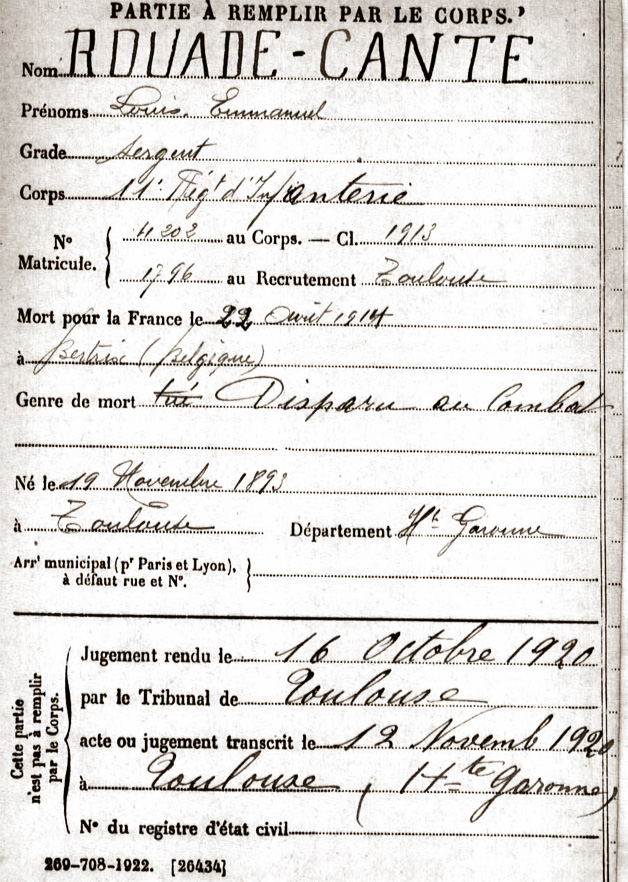 PARTIE À REMPLIR PAR LE CORPS.
Nom ROUADE-CANTE
Prénoms Louis. Emmanuel
Grade Sergent
Corps 11e Régt d'Infanterie
N° Matricule. 4202 au Corps. — Cl. 1913
1796 au Recrutement Toulouse
Mort pour la France le 22 Aout 1914
à Bertrix (Belgique)
Genre de mort tué Disparu au Combat
Né le 19 Novembre 1893
à Toulouse Département Hte Garonne
Arrt municipal (pr Paris et Lyon),
à défaut rue et N°.
Cette partie n'est pas à remplir par le Corps.
Jugement rendu le 16 Octobre 1920
par le Tribunal de Toulouse
acte ou jugement transcrit le 12 Novemb 1920
à Toulouse (Hte Garonne)
N° du registre d'état civil
269-708-1922. [26434]